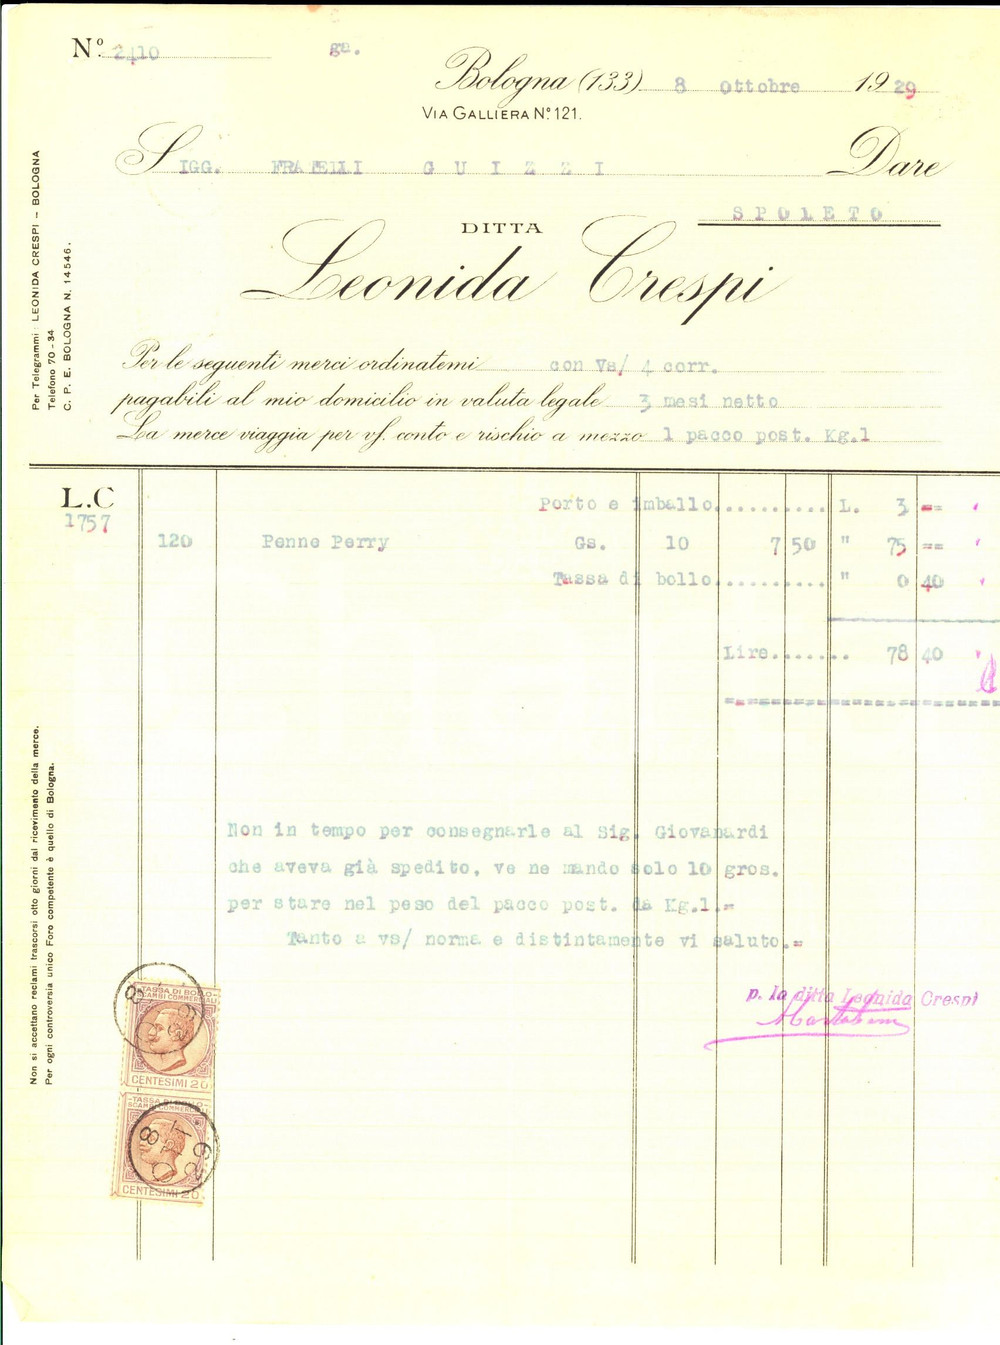 Nº. 2410 ga.
Bologna (133) 8 ottobre 1929
VIA GALLIERA Nº 121.
SIGG. FRATELLI GUIZZI Dare
SPOLETO
DITTA
Leonida Crespi
Per le seguenti merci ordinatemi con Vs/ 4 corr.
pagabili al mio domicilio in valuta legale 3 mesi netto
La merce viaggia per vs. conto e rischio a mezzo 1 pacco post. Kg.1
Per Telegrammi: LEONIDA CRESPI - BOLOGNA
Telefono 70-34
C. P. E. BOLOGNA N. 14546.
L.C
1757
Porto e imballo.......... L. 3 ==
120 Penne Perry Gs. 10 7 50 " 75 ==
Tassa di bollo.......... " 0 40
Lire....... 78 40
Non in tempo per consegnarle al Sig. Giovanardi
che aveva già spedito, ve ne mando solo 10 gros.
per stare nel peso del pacco post. da Kg.1.=
Tanto a vs/ norma e distintamente vi saluto.=
p. la ditta Leonida Crespi
Non si accettano reclami trascorsi otto giorni dal ricevimento della merce.
Per ogni controversia unico Foro competente è quello di Bologna.
-TASSA DI BOLLO-
SCAMBI COMMERCIALI
CENTESIMI 20
-TASSA DI BOLLO-
SCAMBI COMMERCIALI
CENTESIMI 20